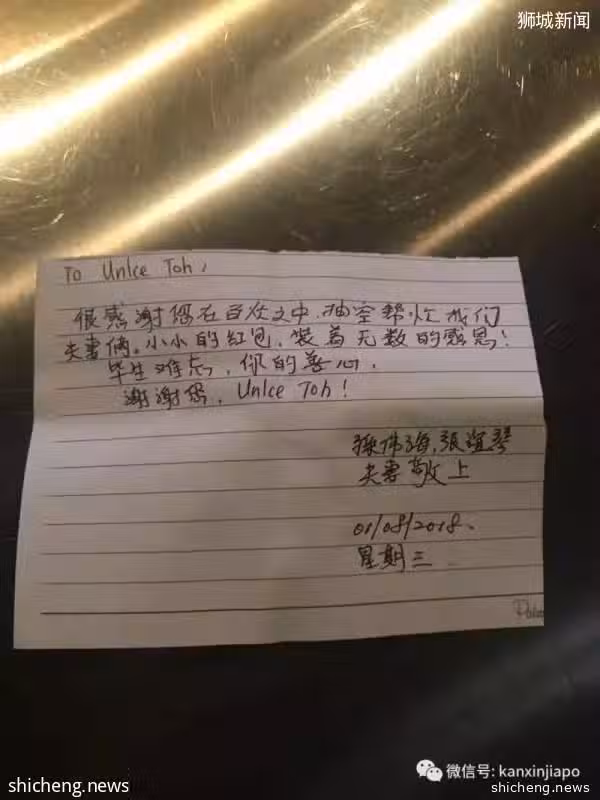 狮城新闻
To Unlce Toh,
很感谢您在百忙之中,抽空帮忙我们
夫妻俩。小小的红包,装着无数的感恩!
毕生难忘,你的善心.
谢谢您, Unlce Toh!
孫伟海,張誼琴
夫妻敬上
01/08/2018.
星期三
微信号: kanxinjiapo
shicheng.news
shicheng.news